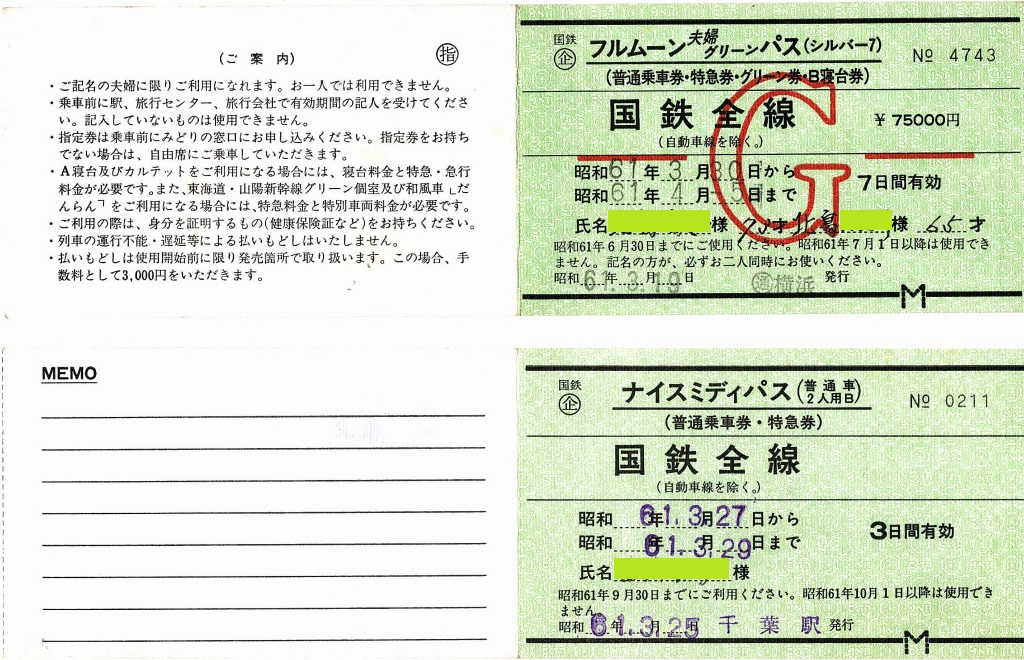 (ご案内)
指
・ご記名の夫婦に限りご利用になれます。お一人では利用できません。
・乗車前に駅、旅行センター、旅行会社で有効期間の記入を受けてくださ
い。記入していないものは使用できません。
・指定券は乗車前にみどりの窓口にお申し込みください。指定券をお持ち
でない場合は、自由席にご乗車していただきます。
・A寝台及びカルテットをご利用になる場合には、寝台料金と特急・急行
料金が必要です。また、東海道・山陽新幹線グリーン個室及び和風車「だ
んらん」をご利用になる場合には、特急料金と特別車両料金が必要です。
・ご利用の際は、身分を証明するもの(健康保険証など)をお持ちください。
・列車の運行不能・遅延等による払いもどしはいたしません。
・払いもどしは使用開始前に限り発売箇所で取り扱います。この場合、手
数料として3,000円をいただきます。
国鉄
企
フルムーン夫婦グリーンパス(シルバー7)
№ 4743
(普通乗車券・特急券・グリーン券・B寝台券)
国鉄全線
(自動車線を除く。)
¥75000円
G
昭和61年3月30日から
昭和61年4月5日まで
7日間有効
氏名 様 才 様 65才
昭和61年6月30日までにご使用ください。昭和61年7月1日以降は使用でき
ません。記名の方が、必ずお二人同時にお使いください。
昭和61年3月19日 通横浜 発行
MEMO
国鉄
企
ナイスミディパス(普通車2人用B)
№ 0211
(普通乗車券・特急券)
国鉄全線
(自動車線を除く。)
昭和61年3月27日から
昭和61年3月29日まで
3日間有効
氏名 様
昭和61年9月30日までにご利用ください。昭和61年10月1日以降は使用でき
ません。
昭和61年3月25日 千葉駅 発行